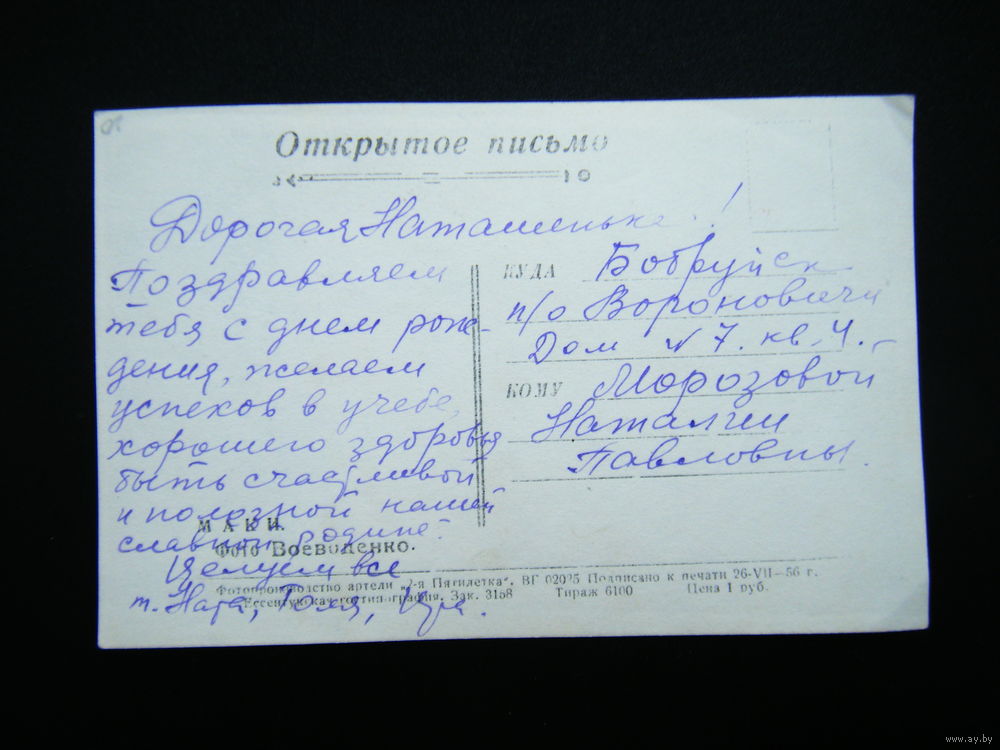 Открытое письмо
Дорогая Наташенька!
Поздравляем
тебя с днем рож-
дения, желаем
успехов в учебе,
хорошего здоровья
быть счастливой
и полезной нашей
славной родине.
Целуем все
т. Ната, Юра.
КУДА Бобруйск
п/о Вороновичи
Дом N 7. кв. 4.
КОМУ Морозовой
Наталии
Павловны.
МАКИ.
Фото Воеводенко.
Фотопроизводство артели „2-я Пятилетка". ВГ 02025 Подписано к печати 26-VII—56 г.
Ессентукская гостипография. Зак. 3158 Тираж 6100 Цена 1 руб.
www.ay.by